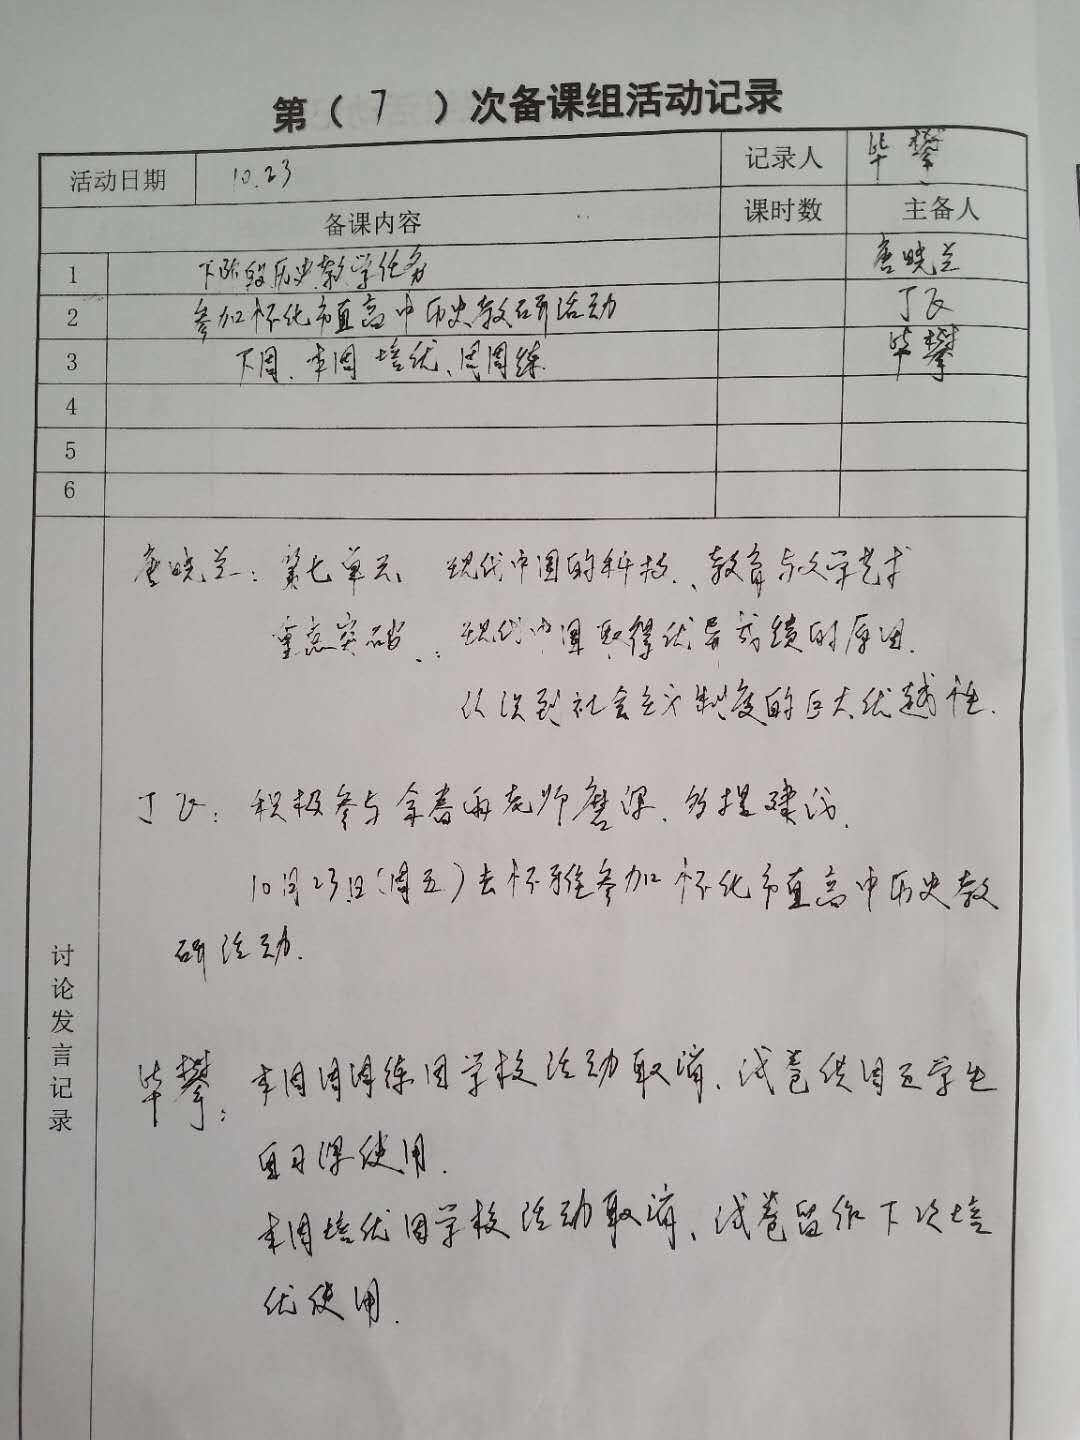 第（ 7 ）次备课组活动记录
活动日期 10.23 记录人 毕攀
备课内容 课时数 主备人
1 下阶段历史教学任务 唐晓兰
2 参加怀化市直高中历史教研活动 丁飞
3 下周、本周培优、周周练 毕攀
4
5
6
讨论发言记录
唐晓兰：第七单元、现代中国的科技、教育与文学艺术
重点突破：现代中国取得优异成绩的原因.
认识到社会主义制度的巨大优越性.
丁飞：积极参与 老师磨课、多提建议.
10月23日(周五)去怀雅参加怀化市直高中历史教
研活动.
毕攀：本周周周练因学校活动取消、试卷供周五学生
自习课使用.
本周培优因学校活动取消、试卷留作下次培
优使用.